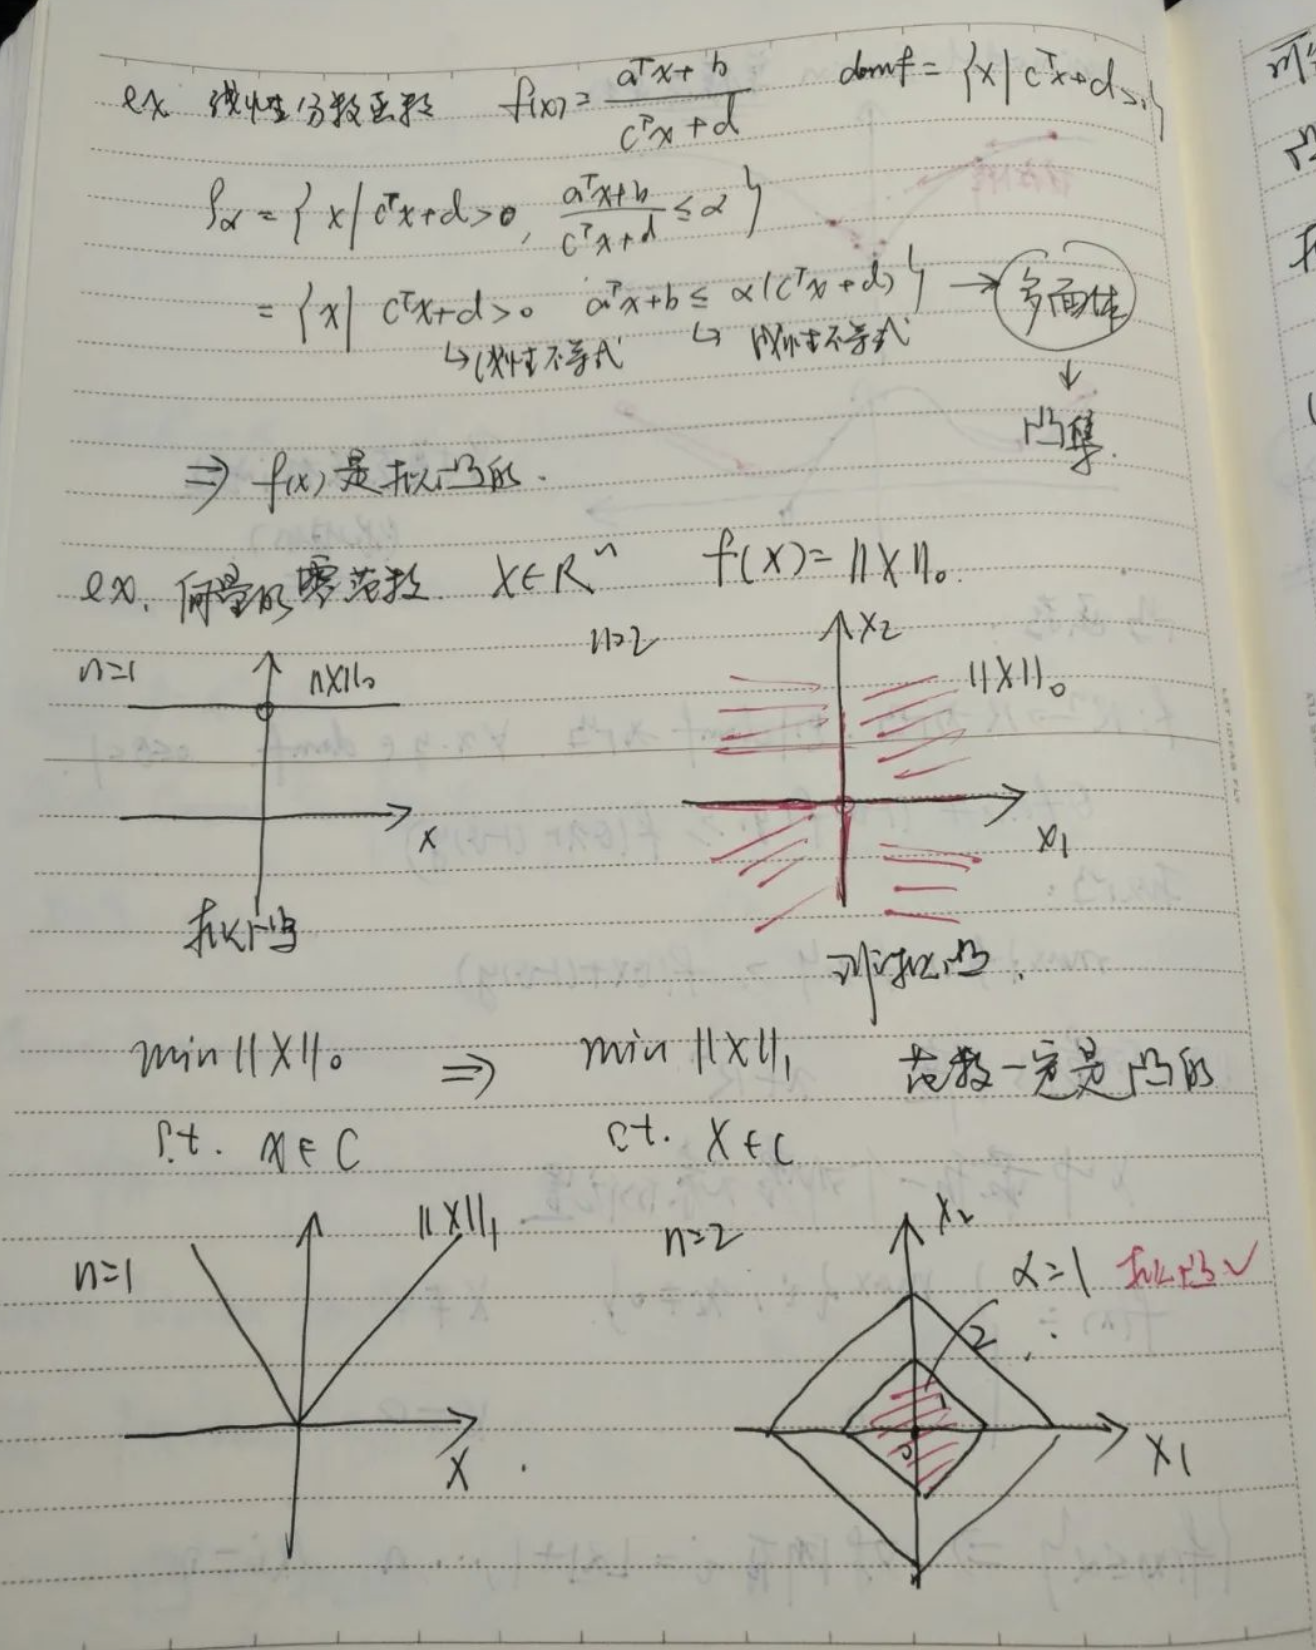 ex. 线性分数函数 f(x) = (aᵀx + b)/(cᵀx + d) domf = {x | cᵀx + d > 0}
Sα = {x | cᵀx + d > 0, (aᵀx + b)/(cᵀx + d) ≤ α}
= {x | cᵀx + d > 0 aᵀx + b ≤ α(cᵀx + d)} → 多面体
↳ 线性不等式 ↳ 线性不等式 ↓
凸集.
⇒ f(x) 是拟凸的.
ex. 向量的零范数. X∈Rⁿ f(X) = ||X||₀.
n=1 ||X||₀ n=2 X₂ ||X||₀
x X₁
拟凸 非拟凸.
min ||X||₀ ⇒ min ||X||₁ 范数一定是凸的
s.t. X∈C s.t. X∈C
n=1 ||X||₁ n=2 X₂ α=1 拟凸✓
2
1
0
X X₁